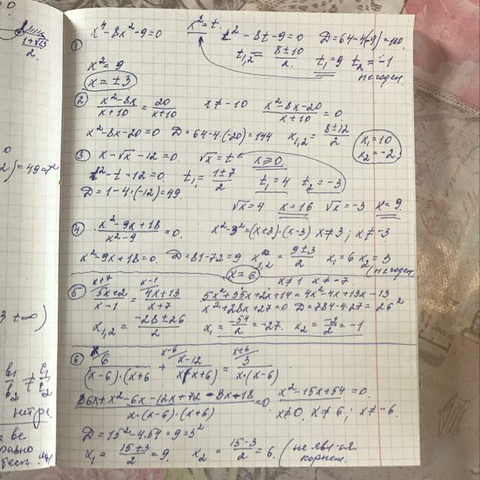 ① x⁴-8x²-9=0 x²=t t²-8t-9=0 D=64-4(-9)=100
t₁,₂=(8±10)/2 t₁=9 t₂=-1
x²=9 не годен.
x=±3
② (x²-8x)/(x+10)=20/(x+10) x≠-10 (x²-8x-20)/(x+10)=0
x²-8x-20=0 D=64-4·(-20)=144 x₁,₂=(8±12)/2 x₁=10
x₂=-2
③ x-√x-12=0 √x=t x≥0
t²-t-12=0 t₁=(1±7)/2 t₁=4 t₂=-3
D=1-4·(-12)=49 √x=4 x=16 √x=-3 x=9
④ (x²-9x+18)/(x²-9)=0 x²-3²=(x+3)·(x-3) x≠3; x≠-3
x²-9x+18=0 D=81-72=9 x₁,₂=(9±3)/2 x₁=6 x₂=3
x=6 (не годен
x≠1 x≠-7
⑤ (5x+2)/(x-1)=(4x+13)/(x+7) 5x²+35x+2x+14=4x²-4x+13x-13
x²+28x+27=0 D=784-4·27=26²
x₁,₂=(-28±26)/2 x₁=-54/2=-27. x₂=-2/2=-1
⑥ 6/((x-6)·(x+6)) + (x-12)/(x(x+6)) = 3/(x·(x-6))
x²-15x+54=0
x≠0, x≠6, x≠-6.
D=15²-4·54=9=3²
x₁=(15+3)/2=9. x₂=(15-3)/2=6. (не явл-ся
корнем.